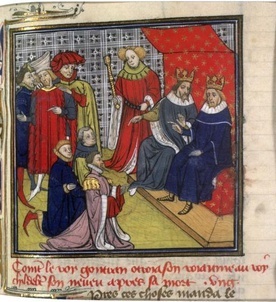 Coment le roy gontran otroia son roiaume au roy
childebert son neveu apres sa mort. Ung
Pres ces choses manda le